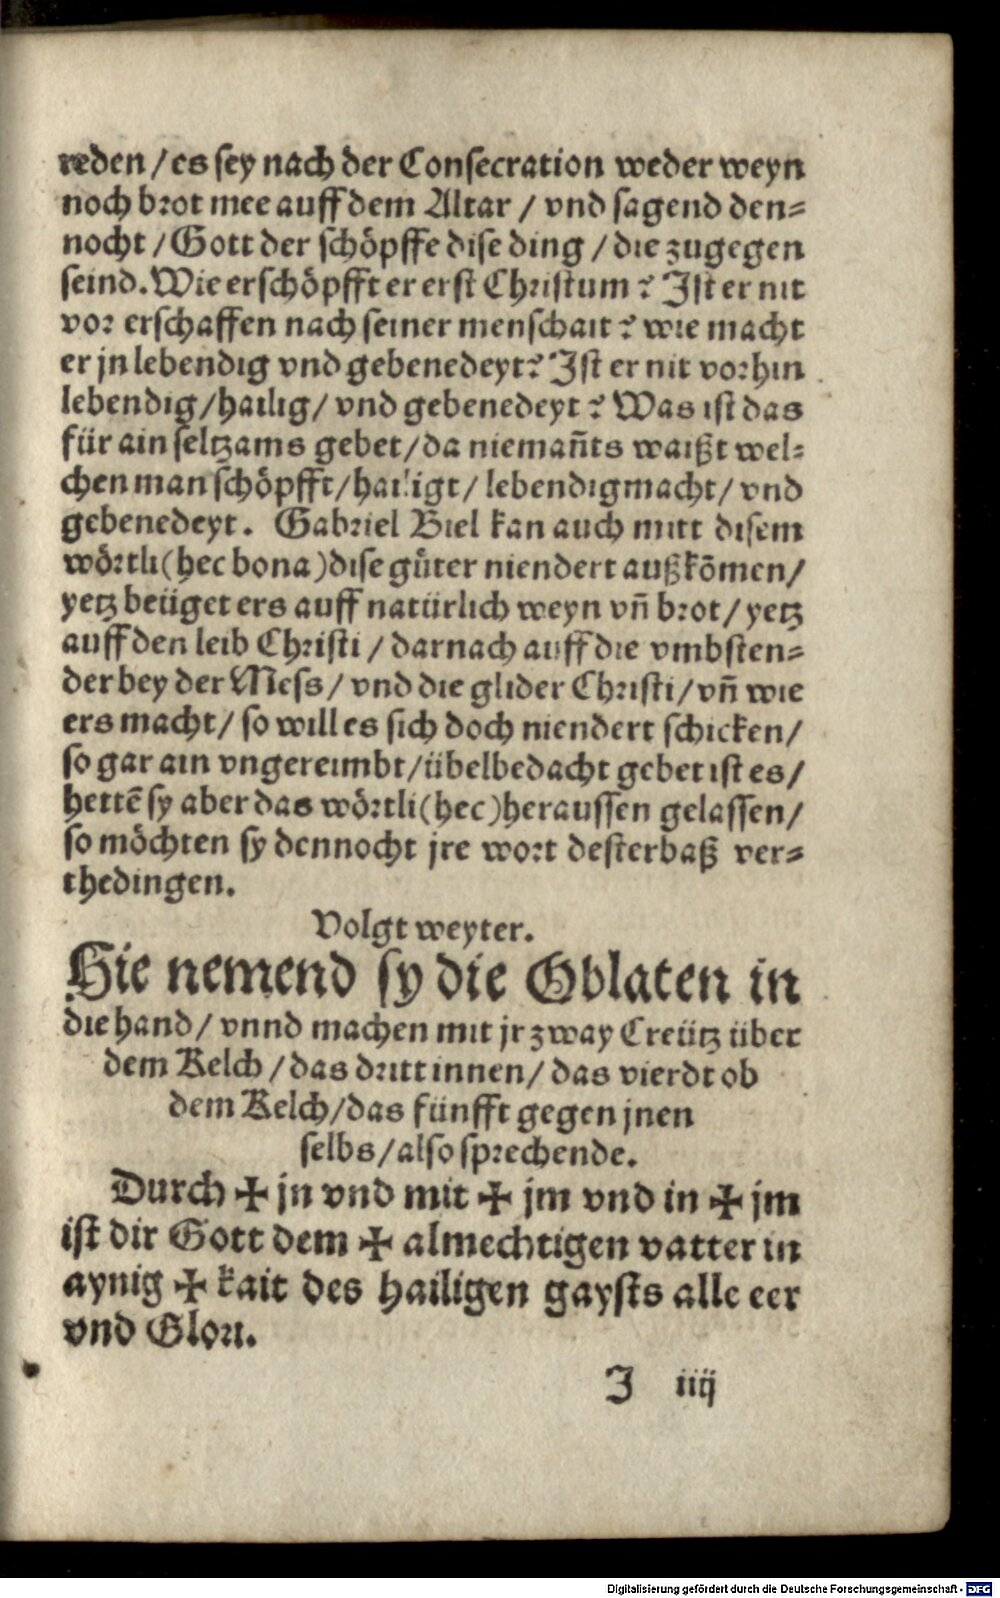 reden / es sey nach der Consecration weder weyn
noch brot mee auff dem Altar / vnd sagend den-
nocht / Gott der schöpffe dise ding / die zugegen
seind. Wie erschöpfft er erst Christum? Ist er nit
vor erschaffen nach seiner menschait? wie macht
er jn lebendig vnd gebenedeyt? Ist er nit vorhin
lebendig / hailig / vnd gebenedeyt? Was ist das
für ain seltzams gebet / da niemañts waißt wel-
chen man schöpfft / hailigt / lebendigmacht / vnd
gebenedeyt. Gabriel Biel kan auch mitt disem
wörtli (hec bona) dise gůter niendert außkōmen /
yetz beüget ers auff natürlich weyn vñ brot / yetz
auff den leib Christi / darnach auff die vmbsten-
der bey der Mess / vnd die glider Christi / vñ wie
ers macht / so will es sich doch niendert schicken /
so gar ain vngereimbt / übelbedacht gebet ist es /
hettē sy aber das wörtli (hec) heraussen gelassen /
so möchten sy dennocht jre wort desterbaß ver-
thedingen.
Volgt weyter.
Hie nemend sy die Oblaten in
die hand / vnnd machen mit jr zway Creütz über
dem Kelch / das dritt innen / das vierdt ob
dem Kelch / das fünfft gegen jnen
selbs / also sprechende.
Durch ✠ jn vnd mit ✠ jm vnd in ✠ jm
ist dir Gott dem ✠ almechtigen vatter in
aynig ✠ kait des hailigen gaysts alle eer
vnd Glori.
J iiij
Digitalisierung gefördert durch die Deutsche Forschungsgemeinschaft - DFG